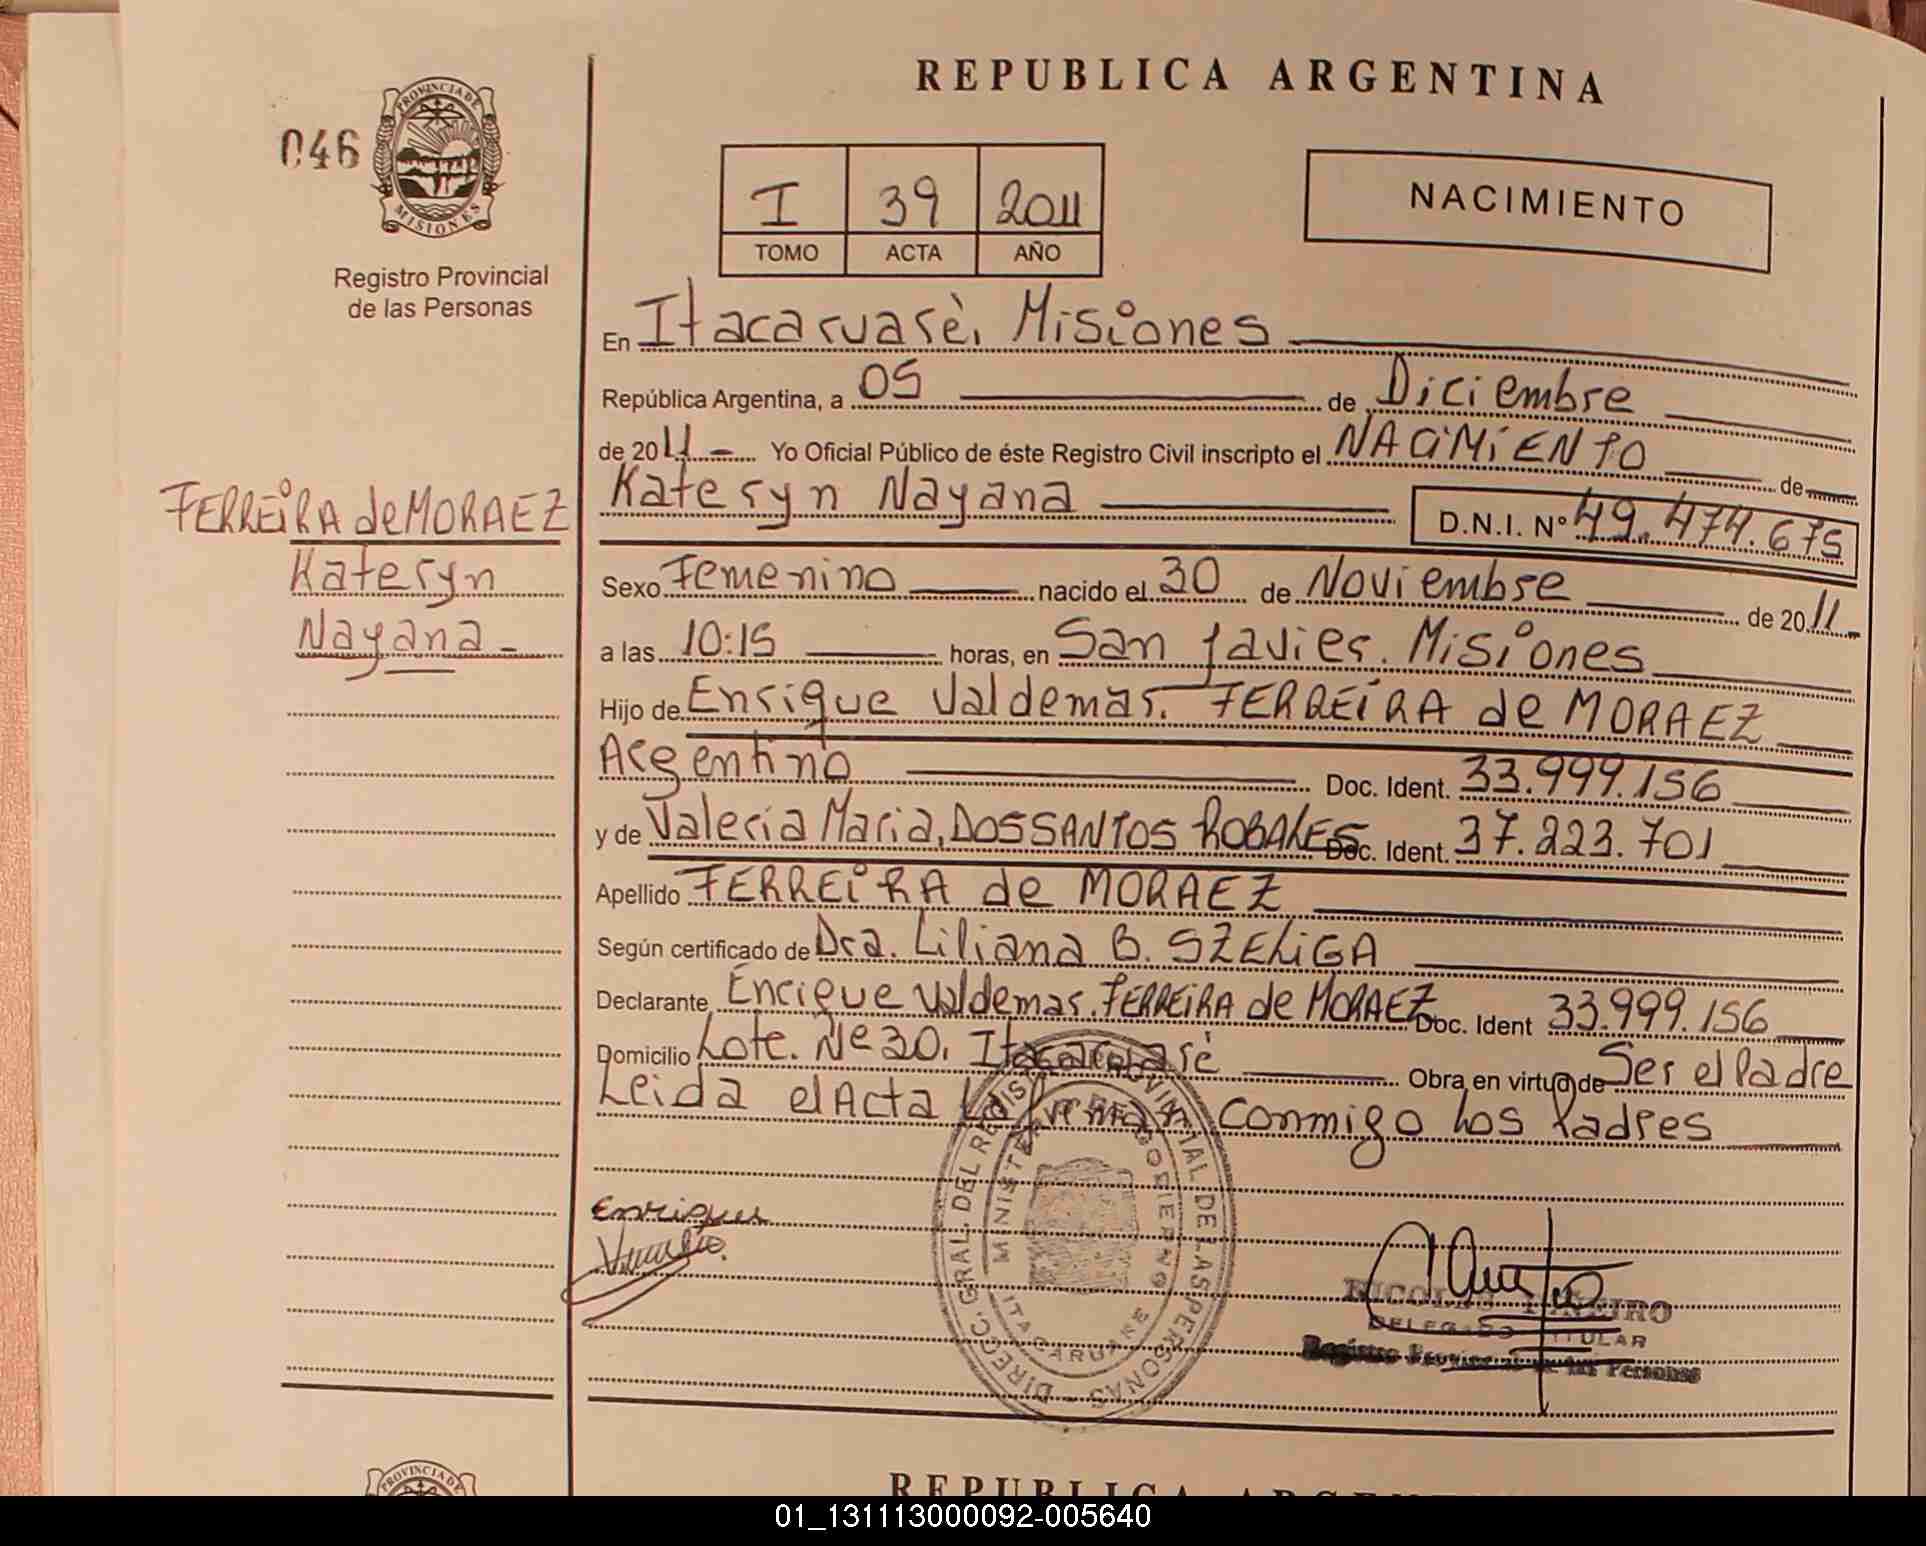 REPUBLICA ARGENTINA
046
PROVINCIA DE
MISIONES
Registro Provincial
de las Personas
I 39 2011
TOMO ACTA AÑO
NACIMIENTO
En Itacaruarè, Misiones
República Argentina, a 05 de Diciembre
de 2011 Yo Oficial Público de éste Registro Civil inscripto el NACIMIENTO de
Kateryn Nayana D.N.I. Nº 49.474.675
FERREIRA de MORAEZ
Kateryn
Nayana
Sexo Femenino nacido el 30 de Noviembre de 2011
a las 10:15 horas, en San Javier. Misiones
Hijo de Enrique Valdemar. FERREIRA de MORAEZ
Argentino Doc. Ident. 33.999.156
y de Valeria Maria, DOSSANTOS ROBALES Doc. Ident. 37.223.701
Apellido FERREIRA de MORAEZ
Según certificado de Dra. Liliana B. SZELIGA
Declarante Enrique Valdemar. FERREIRA de MORAEZ Doc. Ident 33.999.156
Domicilio Lote. Nº 30, Itacaruarè Obra en virtud de Ser el Padre
Leida el Acta La firman conmigo Los Padres
Enrique
DIRECC. GRAL. DEL REGIST. PROVINCIAL DE LAS PERSONAS
MINISTERIO DE GOBIERNO
ITACARUARE
NICOLAS PIÑEIRO
DELEGADO TITULAR
Registro Provincial de las Personas
PROVINCIA DE
REPUBLICA ARGENTINA
01_131113000092-005640